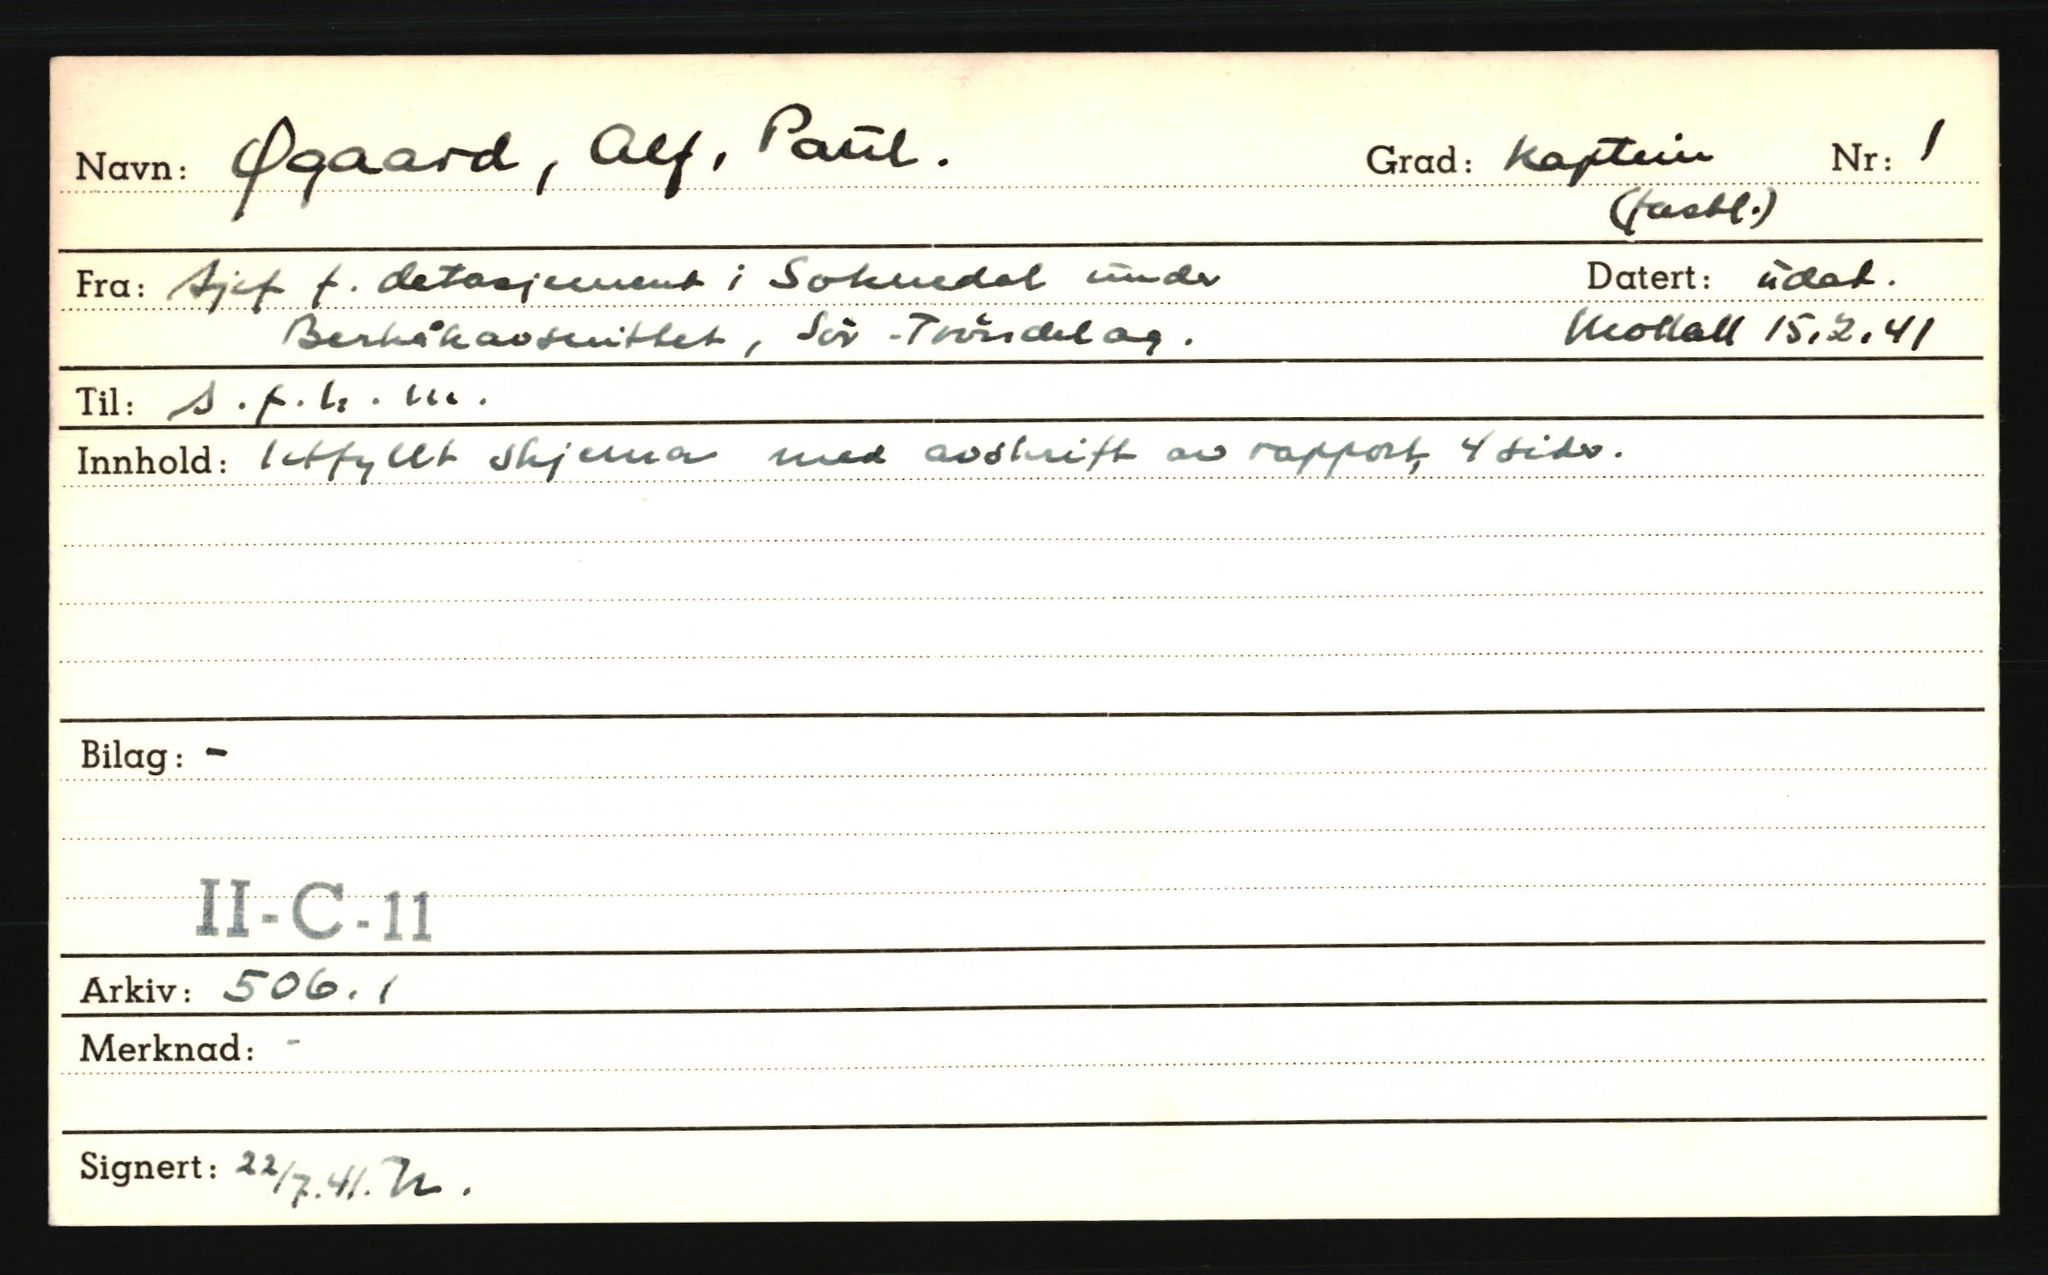 Navn: Øgaard, Alf, Paul. Grad: Kaptein Nr: 1
(fastl.)
Fra: Sjef f. detasjement i Soknedal under Datert: udat.
Berkåkavsnittet, Sör-Tröndelag. Mottatt 15.2.41
Til: S.f.h.m.
Innhold: Utfyllt skjema med avskrift av rapport, 4 sider.
Bilag: -
II-C-11
Arkiv: 506.1
Merknad: -
Signert: 22/7.41.